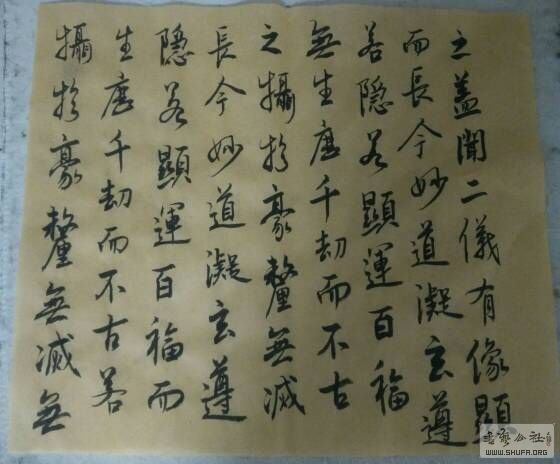 之蓋聞二儀有像顯
而長今妙道凝玄遵
若隱若顯運百福
無生歷千劫而不古
之攝於豪釐無滅
長今妙道凝玄遵
隱若顯運百福而
生歷千劫而不古若
攝於豪釐無滅無
書藝公社
WWW.SHUFA.ORG